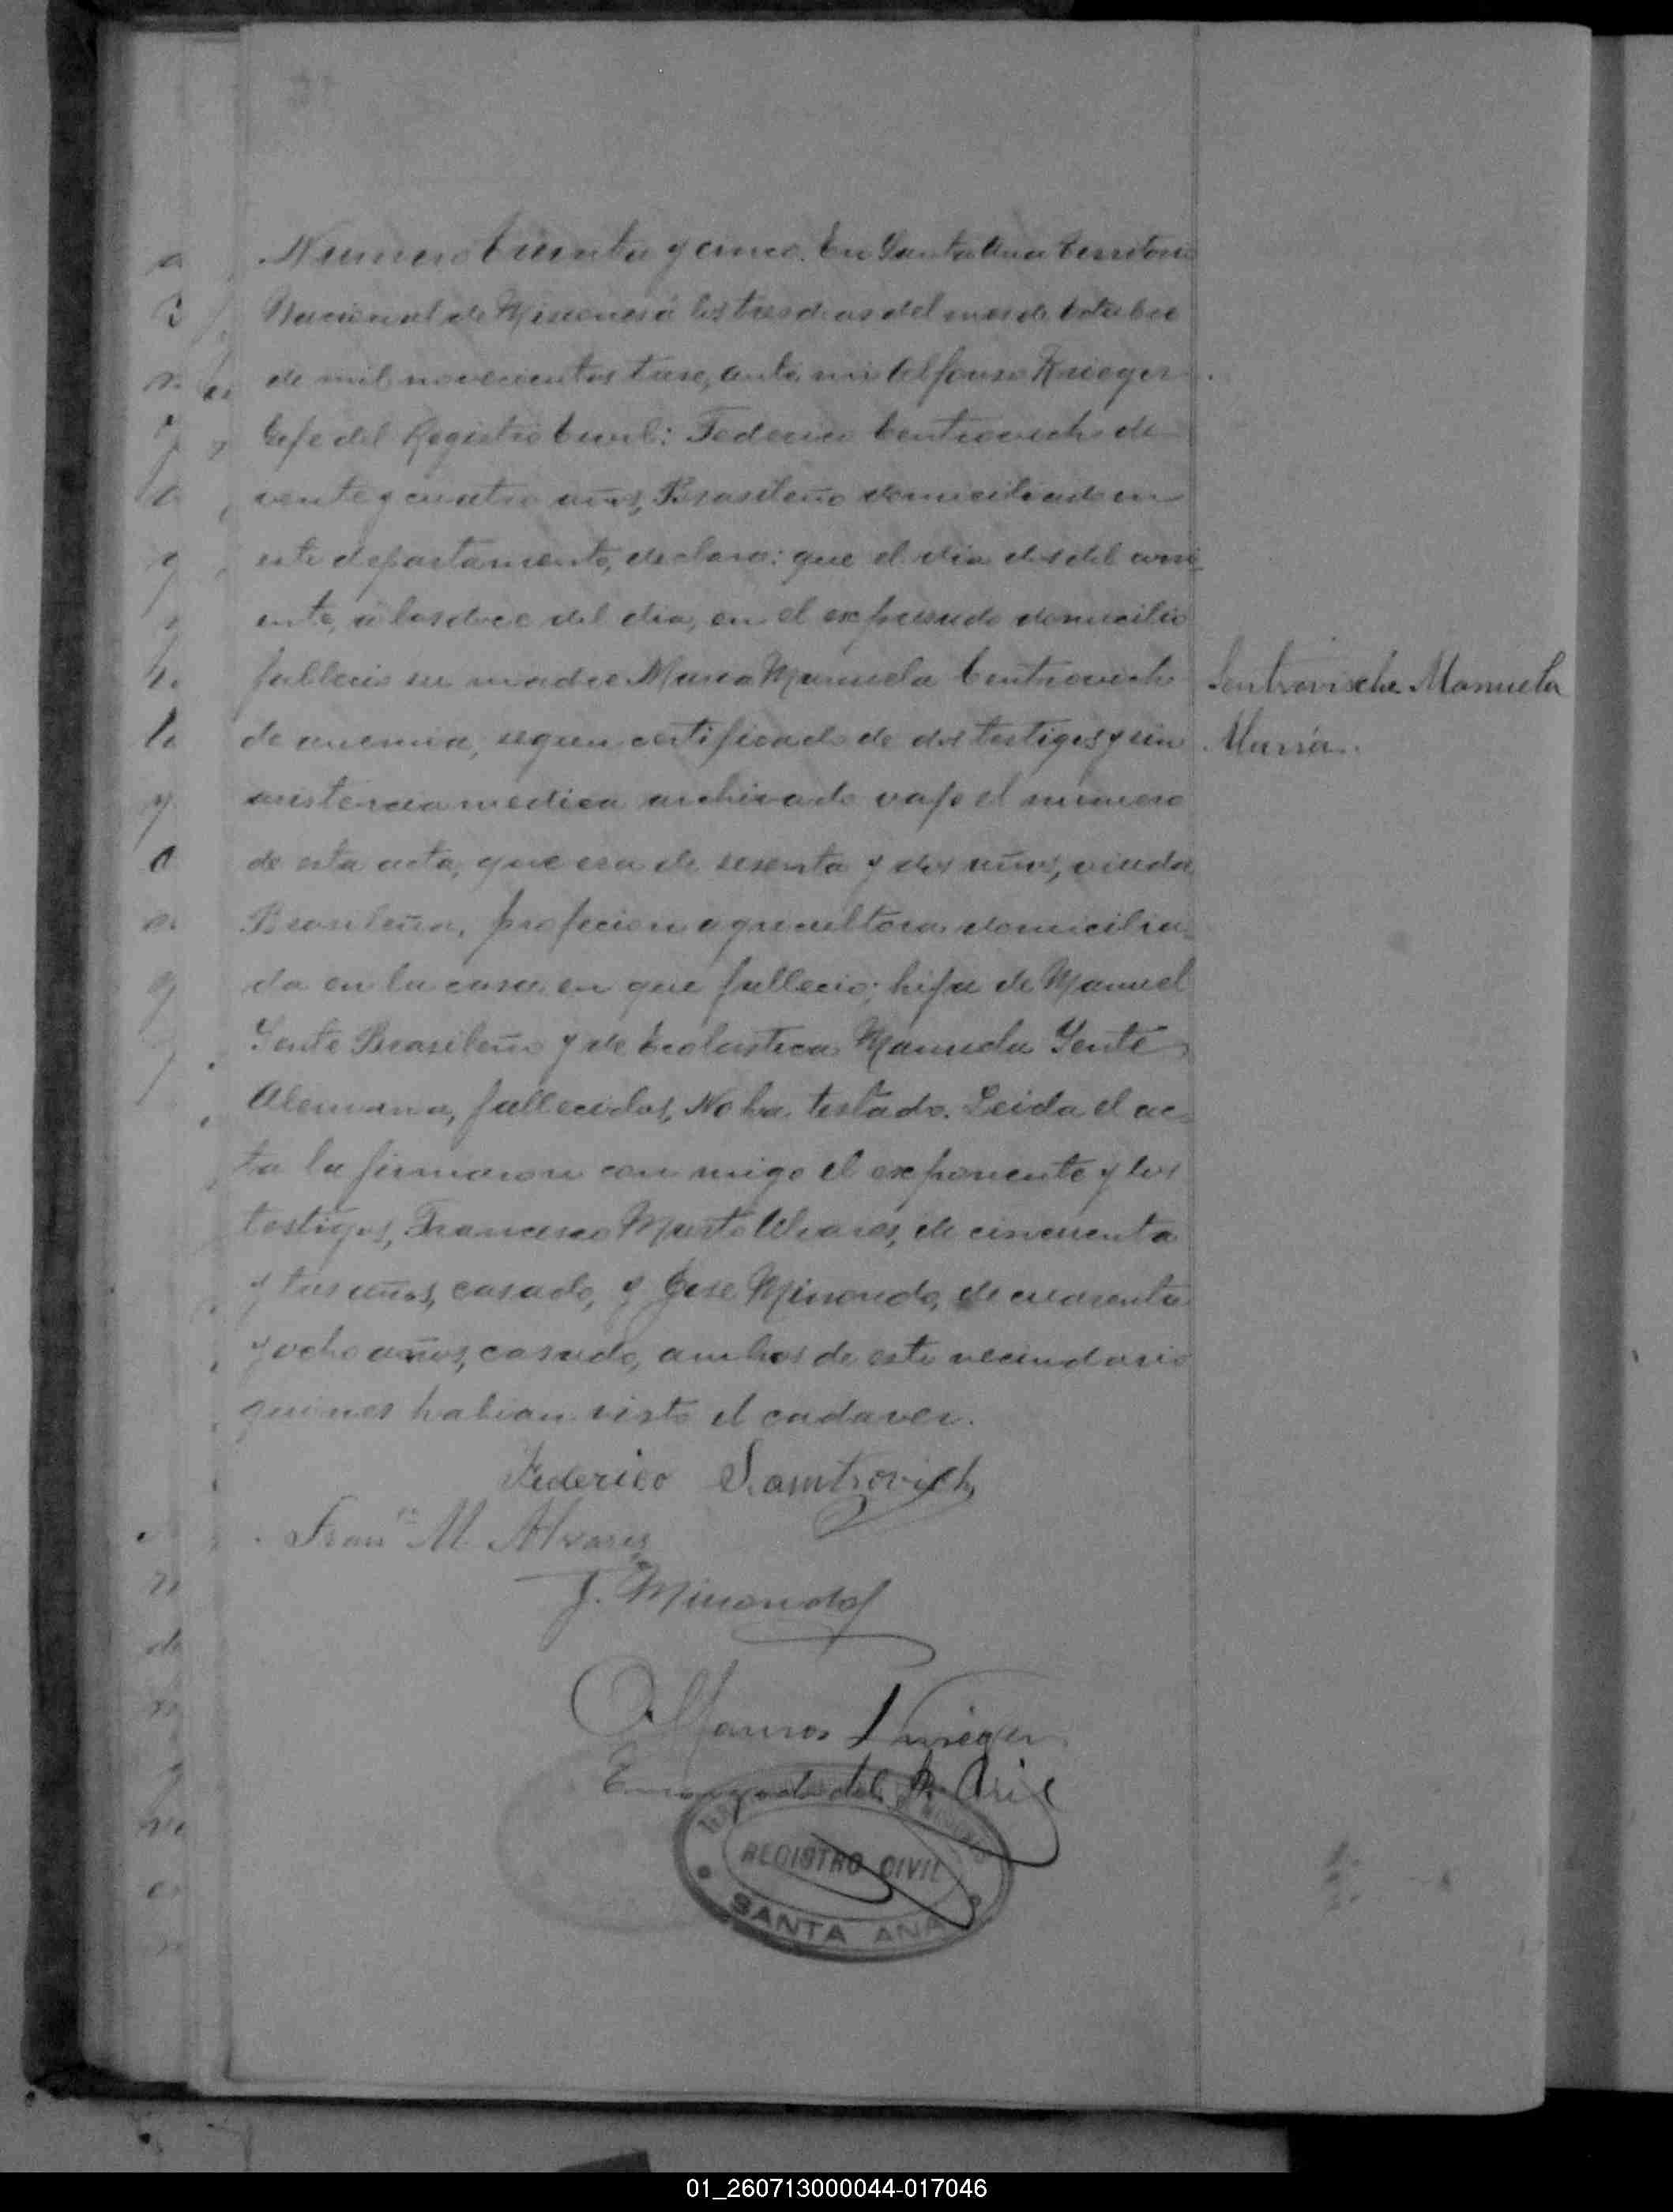 Numero treinta y cinco. En Santa Ana Territorio
Nacional de Misiones á los tres dias del mes de Octubre
de mil novecientos trese, ante mi Alfonso Krieger
Gefe del Registro Civil: Federico Centrovich de
vente y cuatro años, Brasileño domiciliado en
este departamento, declara: que el dia dos del corri-
ente, a las doce del dia, en el expresado domicilio
fallecio su madre Maria Manuela Centrovich
Sentrovische Manuela
de anemia, segun certificado de dos testigos y sin
María.
asistencia medica archivado vajo el numero
de esta acta, que era de sesenta y dos años, viuda
Brasileña, profecion agricultora domicilia-
da en la casa en que fallecio; hija de Manuel
Gente Brasileño y de Escolastica Manuela Gente
Alemana, fallecidos, No ha testado. Leida el ac-
ta la firmaron con migo el exponente y los
testigos, Francisco Alvares, de cincuenta
y tres años, casado, y José Minondo, de cuarenta
y ocho años, casado, ambos de este vecindario
quienes habian visto el cadaver.
Federico Santrovich
Fran^co M. Alvares
J. Minondo
Alfonso Krieger
Encargado del R. Civil
REGISTRO CIVIL
SANTA ANA
01_260713000044-017046